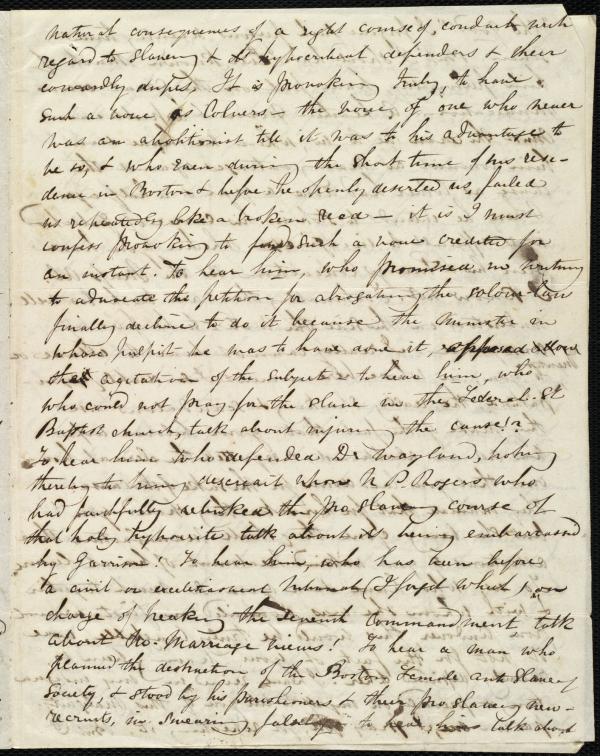 natural consequences of a right course of conduct with
regard to slavery & its hypocritical defenders & their
cowardly dupes. It is provoking truly, to have
such a one as Colver's — the voice of one who never
was an abolitionist till it was to his advantage to
be so, & who even during the short time of his resi-
dence in Boston & before he openly deserted us, failed
us repeatedly like a broken reed — it is I must
confess provoking to find such a one credited for
an instant. To hear him, who promised in writing
to advocate the petition for abrogating the colour law
finally decline to do it because the minister in
whose pulpit he was to have done it, opposed
the agitation of the subject: to hear him, who
who could not pray for the slave in the Federal St
Baptist church, talk about injuring the cause!
To hear him who defended Dr Wayland, hoping
thereby to bring discredit upon N. P. Rogers who
had faithfully rebuked the pro slavery course of
that holy hypocrite talk about its being embarrassed
by Garrison! To hear him, who has been before
a civil or ecclesiastical tribunal (I forget which) on
charge of breaking the seventh commandment talk
about No-Marriage views! To hear a man who
planned the destruction of the Boston Female anti slavery
Society, & stood by his parishioners & their pro slavery new-
recruits, in swearing falsely to hear him talk about